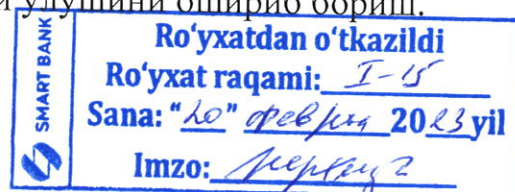 улушини ошириб бориш.
SMART BANK
Ro‘yxatdan o‘tkazildi
Ro‘yxat raqami: I-15
Sana: "20" феврал 2023 yil
Imzo: